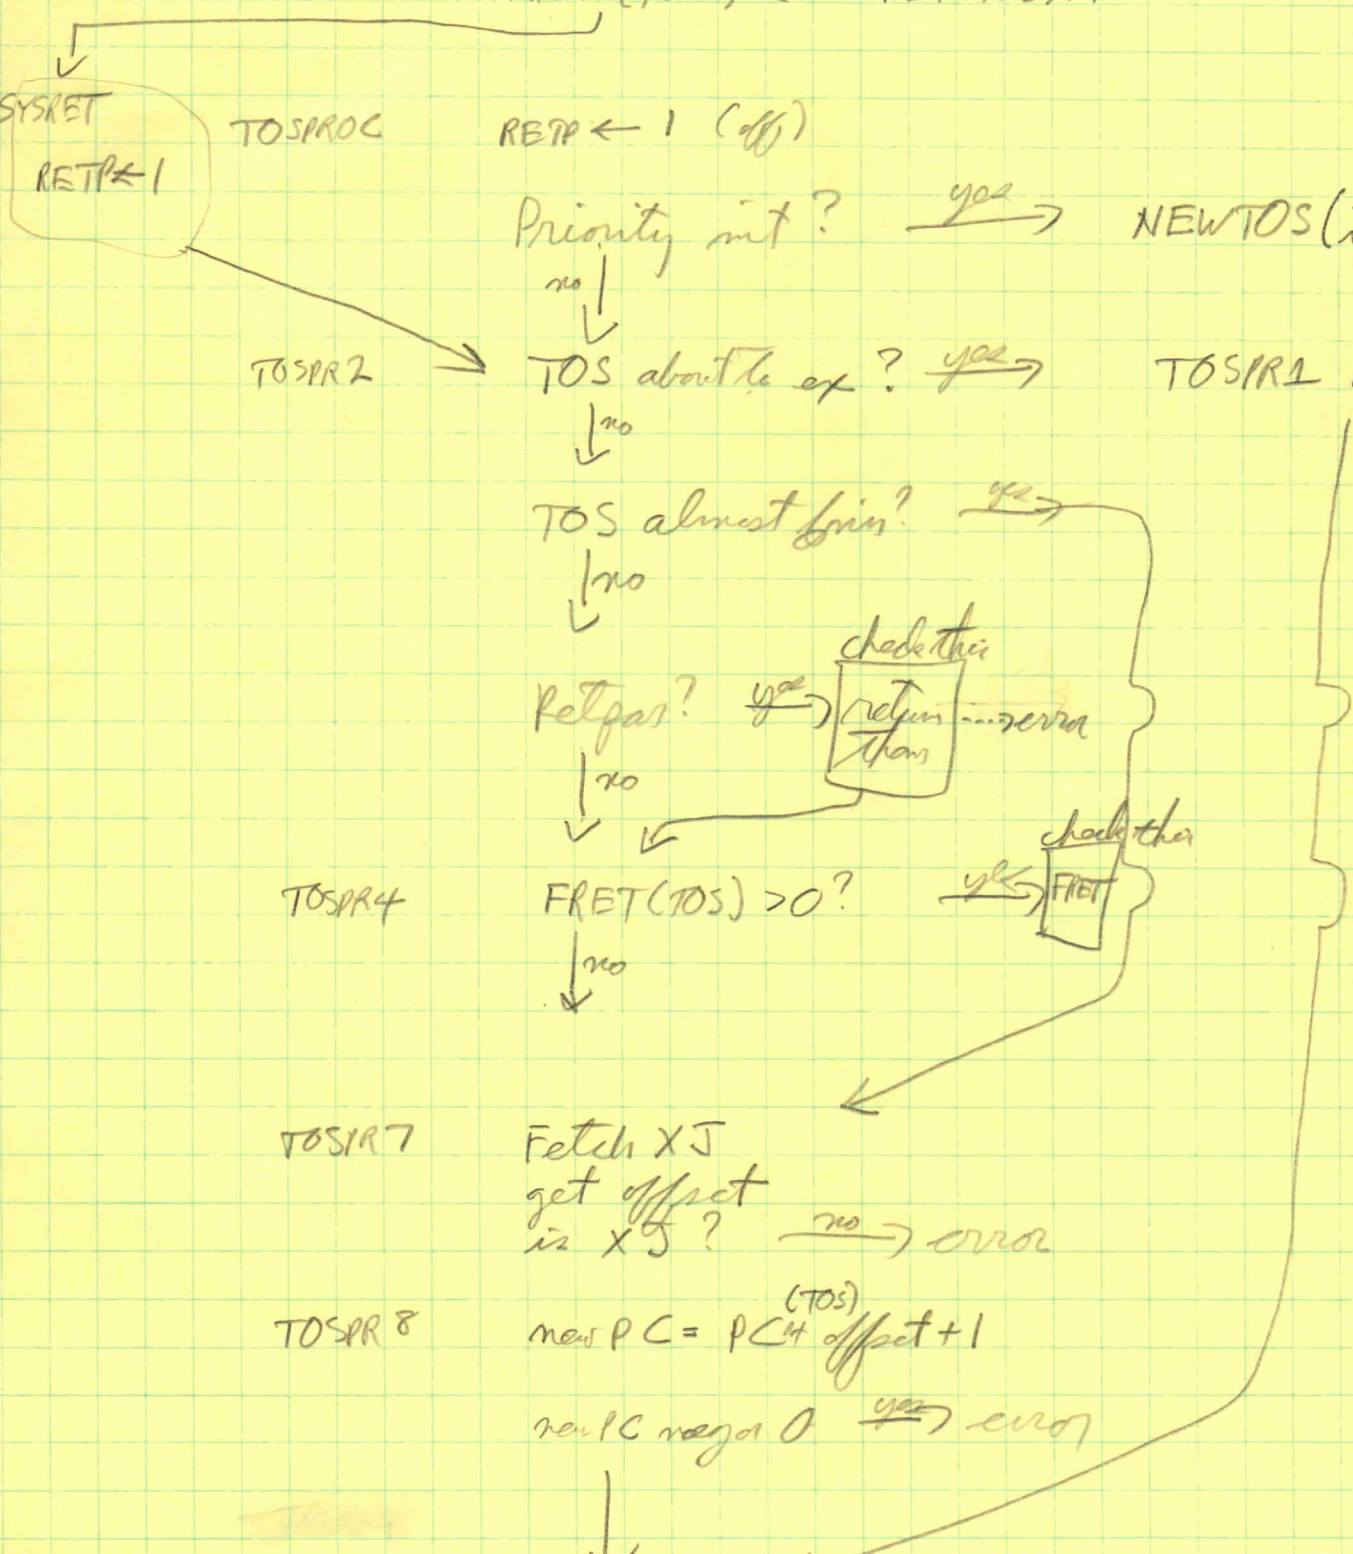 SYSRET
RETP←1
TOSPROC RETP ← 1 (off)
Priority int? yes → NEWTOS(
no
TOSPR2 TOS about to ex? yes → TOSPR1
no
TOS almost finis? yes
no
check this
Retpar? yes → return ....→ error
no
check this
TOSPR4 FRET(TOS) >0? yes → FRET
no
TOSPR7 Fetch XJ
get offset
is XJ? no → error
(TOS)
TOSPR8 new PC = PC + offset + 1
new PC neg or 0 yes → error